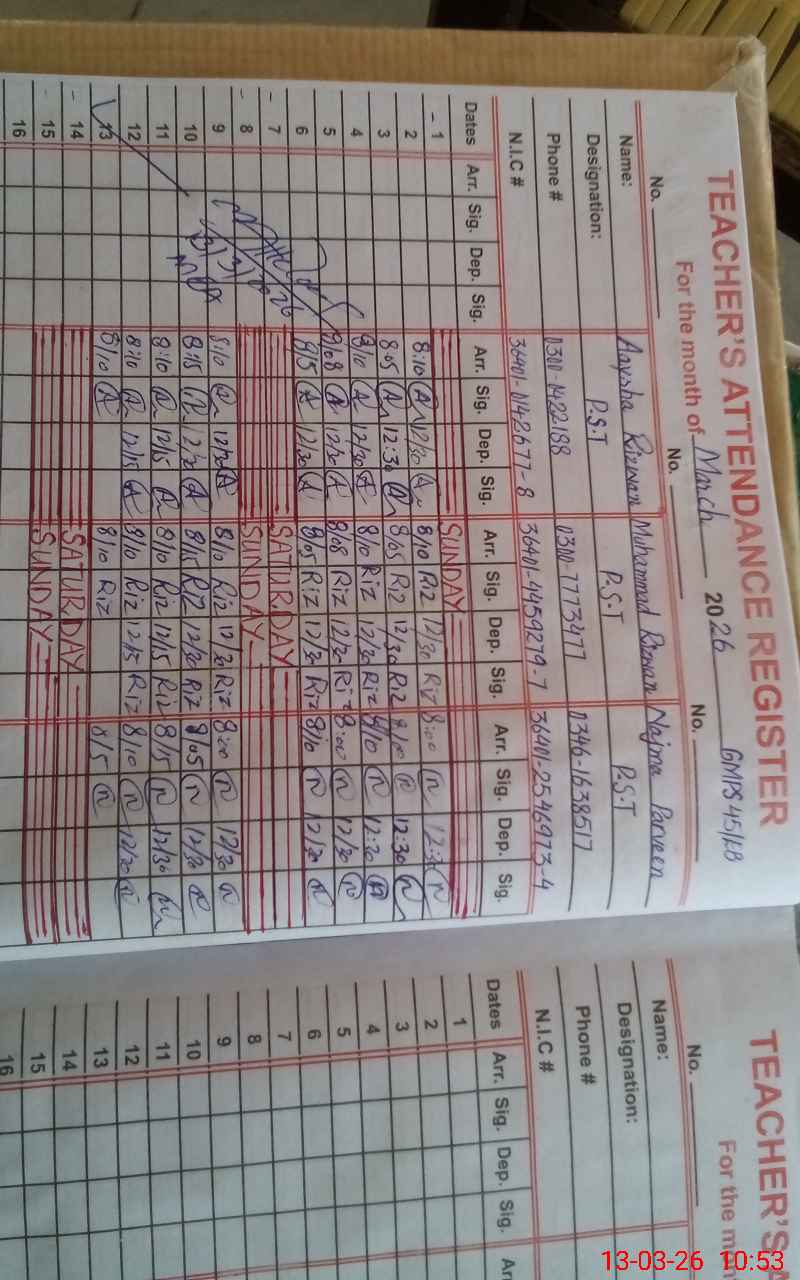 TEACHER'S ATTENDANCE REGISTER
For the month of March 2026 GMPS 45/KB
No. No. No.
Name: Aaysha Rizwan Muhammad Rizwan Najma Parveen
Designation: P.S.T P.S.T P.S.T
Phone # 0300-1422188 0300-7773477 0346-1638517
N.I.C # 36401-0142677-8 36401-4459279-7 36401-2546973-4
Dates Arr. Sig. Dep. Sig. Arr. Sig. Dep. Sig. Arr. Sig. Dep. Sig. Arr. Sig. Dep. Sig.
1 SUNDAY
2 8:10 A 12/30 A 8/10 Riz 12/30 Riz 8:00 n 12:30 n
3 8:05 A 12:30 A 8/05 Riz 12/30 Riz 8/00 n 12:30 n
4 8/10 A 12/30 A 8/10 Riz 12/30 Riz 8/10 n 12:30 n
5 8/08 A 12/30 A 8/08 Riz 12/30 Riz 8:00 n 12/30 n
6 8/5 A 12/30 A 8/05 Riz 12/30 Riz 8/10 n 12/30 n
7 SATURDAY
8 SUNDAY
9 8/10 A 12/30 A 8/10 Riz 12/30 Riz 8:00 n 12/30 n
10 8:15 A 12/30 A 8/15 Riz 12/30 Riz 8/05 n 12/30 n
11 8:10 A 12/15 A 8/10 Riz 12/15 Riz 8/15 n 12/30 n
12 8:10 A 12/15 A 8/10 Riz 12/15 Riz 8/10 n 12/30 n
13 8/10 A 8/10 Riz 8/5 n
14 SATURDAY
15 SUNDAY
16
TEACHER'S
For the mon
No.
Name:
Designation:
Phone #
N.I.C #
Dates Arr. Sig. Dep. Sig. Arr
1
2
3
4
5
6
7
8
9
10
11
12
13
14
15
16
13-03-26 10:53